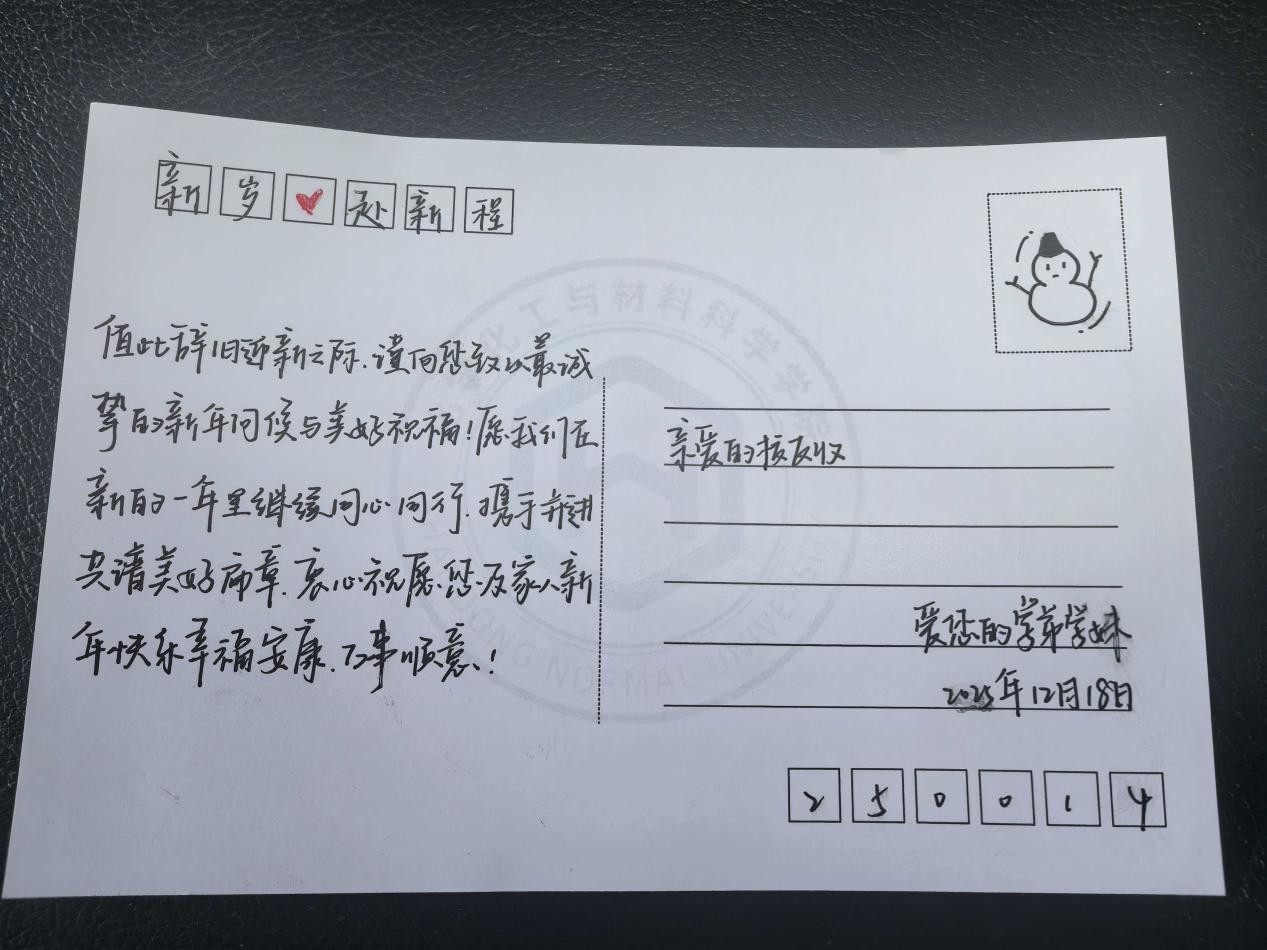 新岁❤赴新程
值此辞旧迎新之际,谨向您致以最诚
挚的新年问候与美好祝福!愿我们在
新的一年里继续同心同行,携手并进
共谱美好篇章,衷心祝愿您及家人新
年快乐幸福安康,万事顺意!
亲爱的校友收
爱您的学弟学妹
2025年12月18日
250014
化工与材料科学学院
NORMAL UNIVERSI